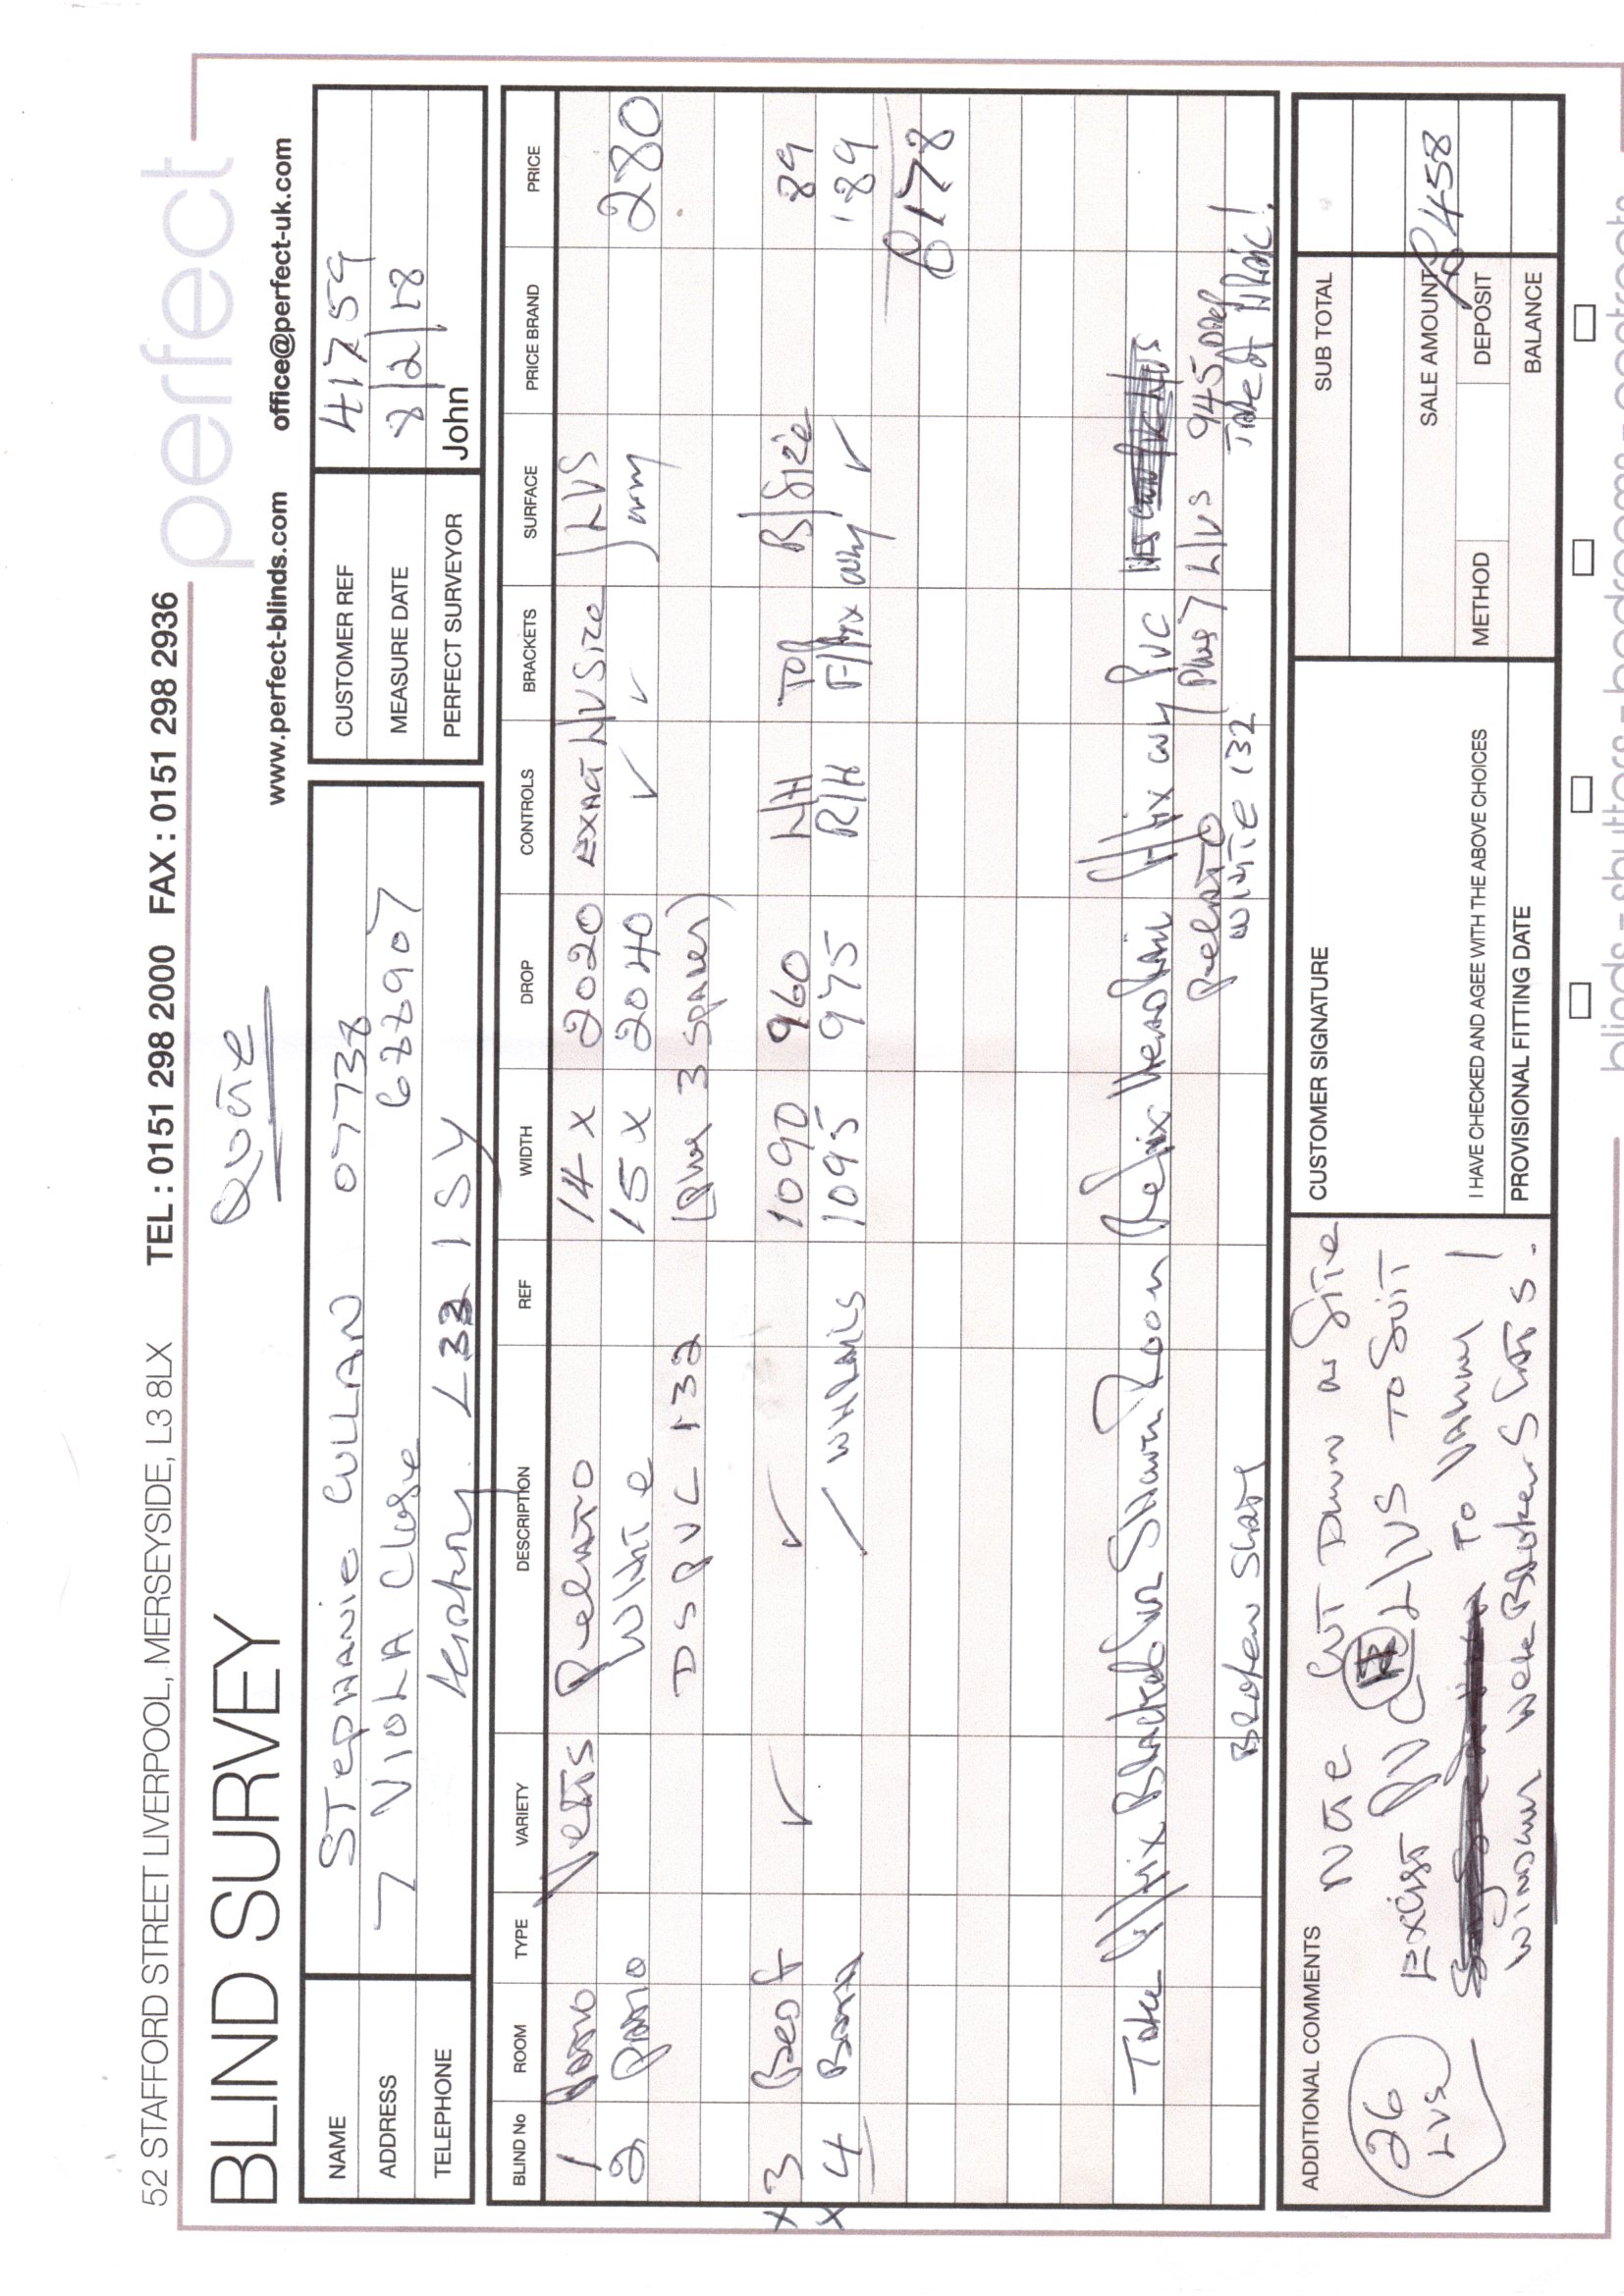 52 STAFFORD STREET LIVERPOOL, MERSEYSIDE, L3 8LX TEL : 0151 298 2000 FAX : 0151 298 2936
perfect
BLIND SURVEY
Quote
www.perfect-blinds.com office@perfect-uk.com
NAME STEPHANIE CULLAN 07738
ADDRESS 7 VIOLA Close 628907
TELEPHONE L33 1SY
CUSTOMER REF 41759
MEASURE DATE 8/2/18
PERFECT SURVEYOR John
BLIND No ROOM TYPE VARIETY DESCRIPTION REF WIDTH DROP CONTROLS BRACKETS SURFACE PRICE BRAND PRICE
1 PATIO Verts 14 X 2020 EXACT L/V Size LVS
2 Patio White 15 X 2040 ✓ ✓ only 280
DS PVC 132 (Plus 3 Spares)
X 3 ✓ ✓ 1090 960 L/H Top B/Size 89
X 4 1095 975 R/H F/fix only ✓ 89
£178
Take Room Refix Headrail PVC
Plus 7 L/VS 945 Drop
Broken Slats WHITE 132 Take of
ADDITIONAL COMMENTS Note Cut Down on Site
26 LVS
Exist PVC L/VS TO SUIT
To
Window Were Broken Slats.
CUSTOMER SIGNATURE
I HAVE CHECKED AND AGEE WITH THE ABOVE CHOICES
PROVISIONAL FITTING DATE
SUB TOTAL
SALE AMOUNT £458
METHOD DEPOSIT
BALANCE
blinds - shutters - bedrooms - contracts